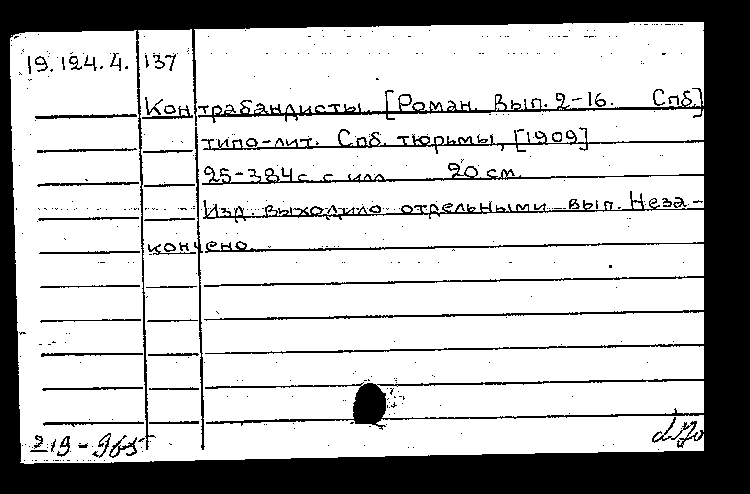 19.124.4. 137
Контрабандисты. [Роман. Вып. 2-16. Спб.]
типо-лит. Спб. тюрьмы, [1909]
25-384 с. с илл. 20 см.
Изд. выходило отдельными вып. Неза-
кончено.
219-965